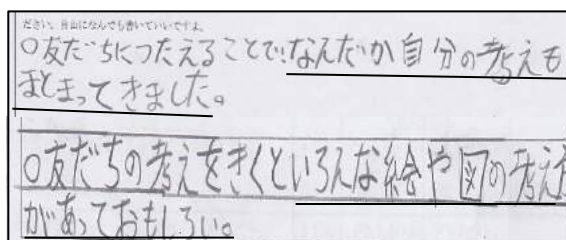 ださい。自由になんでも書いていいですよ。
○友だちにつたえることで、なんだか自分の考えも
まとまってきました。
○友だちの考えをきくといろんな絵や図の考え方
があっておもしろい。